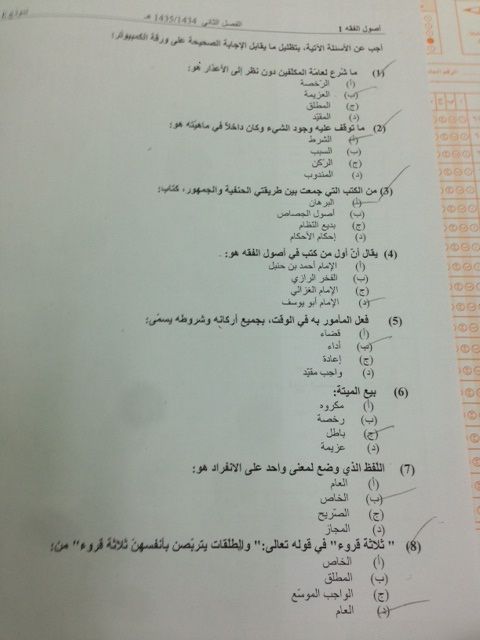 أصول الفقه 1
الفصل الثاني 1435/1434 هـ
أجب عن الأسئلة الآتية، بتظليل ما يقابل الإجابة الصحيحة على ورقة الكمبيوتر:
(1) ما شُرع لعامّة المكلفين دون نظر إلى الأعذار هو:
(أ) الرّخصة
(ب) العزيمة
(ج) المطلق
(د) المقيّد
(2) ما توقف عليه وجود الشيء وكان داخلاً في ماهيّته هو:
(أ) الشرط
(ب) السبب
(ج) الرّكن
(د) المندوب
(3) من الكتب التي جمعت بين طريقتي الحنفية والجمهور، كتاب:
(أ) البرهان
(ب) أصول الجصاص
(ج) بديع النظام
(د) إحكام الأحكام
(4) يقال أنّ أول من كتب في أصول الفقه هو:
(أ) الإمام أحمد بن حنبل
(ب) الفخر الرازي
(ج) الإمام الغزالي
(د) الإمام أبو يوسف
(5) فعل المأمور به في الوقت، بجميع أركانه وشروطه يسمّى:
(أ) قضاء
(ب) أداء
(ج) إعادة
(د) واجب مقيّد
(6) بيع الميتة:
(أ) مكروه
(ب) رخصة
(ج) باطل
(د) عزيمة
(7) اللفظ الذي وضع لمعنى واحد على الانفراد هو:
(أ) العام
(ب) الخاص
(ج) الصّريح
(د) المجاز
(8) " ثلاثة قروء" في قوله تعالى:" والمطلقات يتربّصن بأنفسهنّ ثلاثة قروء" من:
(أ) الخاص
(ب) المطلق
(ج) الواجب الموسّع
(د) العام